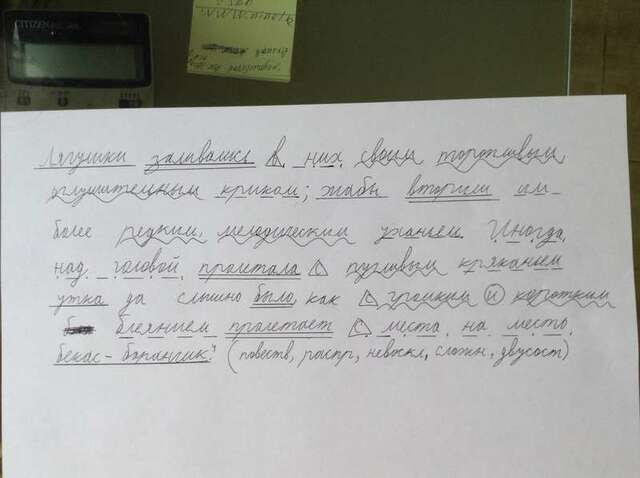 CITIZEN
Лягушки заливались в них своим торопливым
оглушительным криком; жабы вторили им
более редким, мелодическим уханьем. Иногда
над головой пролетала с пугливым кряканьем
утка да слышно было, как с громким и коротким
блеянием пролетает с места на место
бекас-барашик". (повеств, распр, невоскл, сложн, двусост)